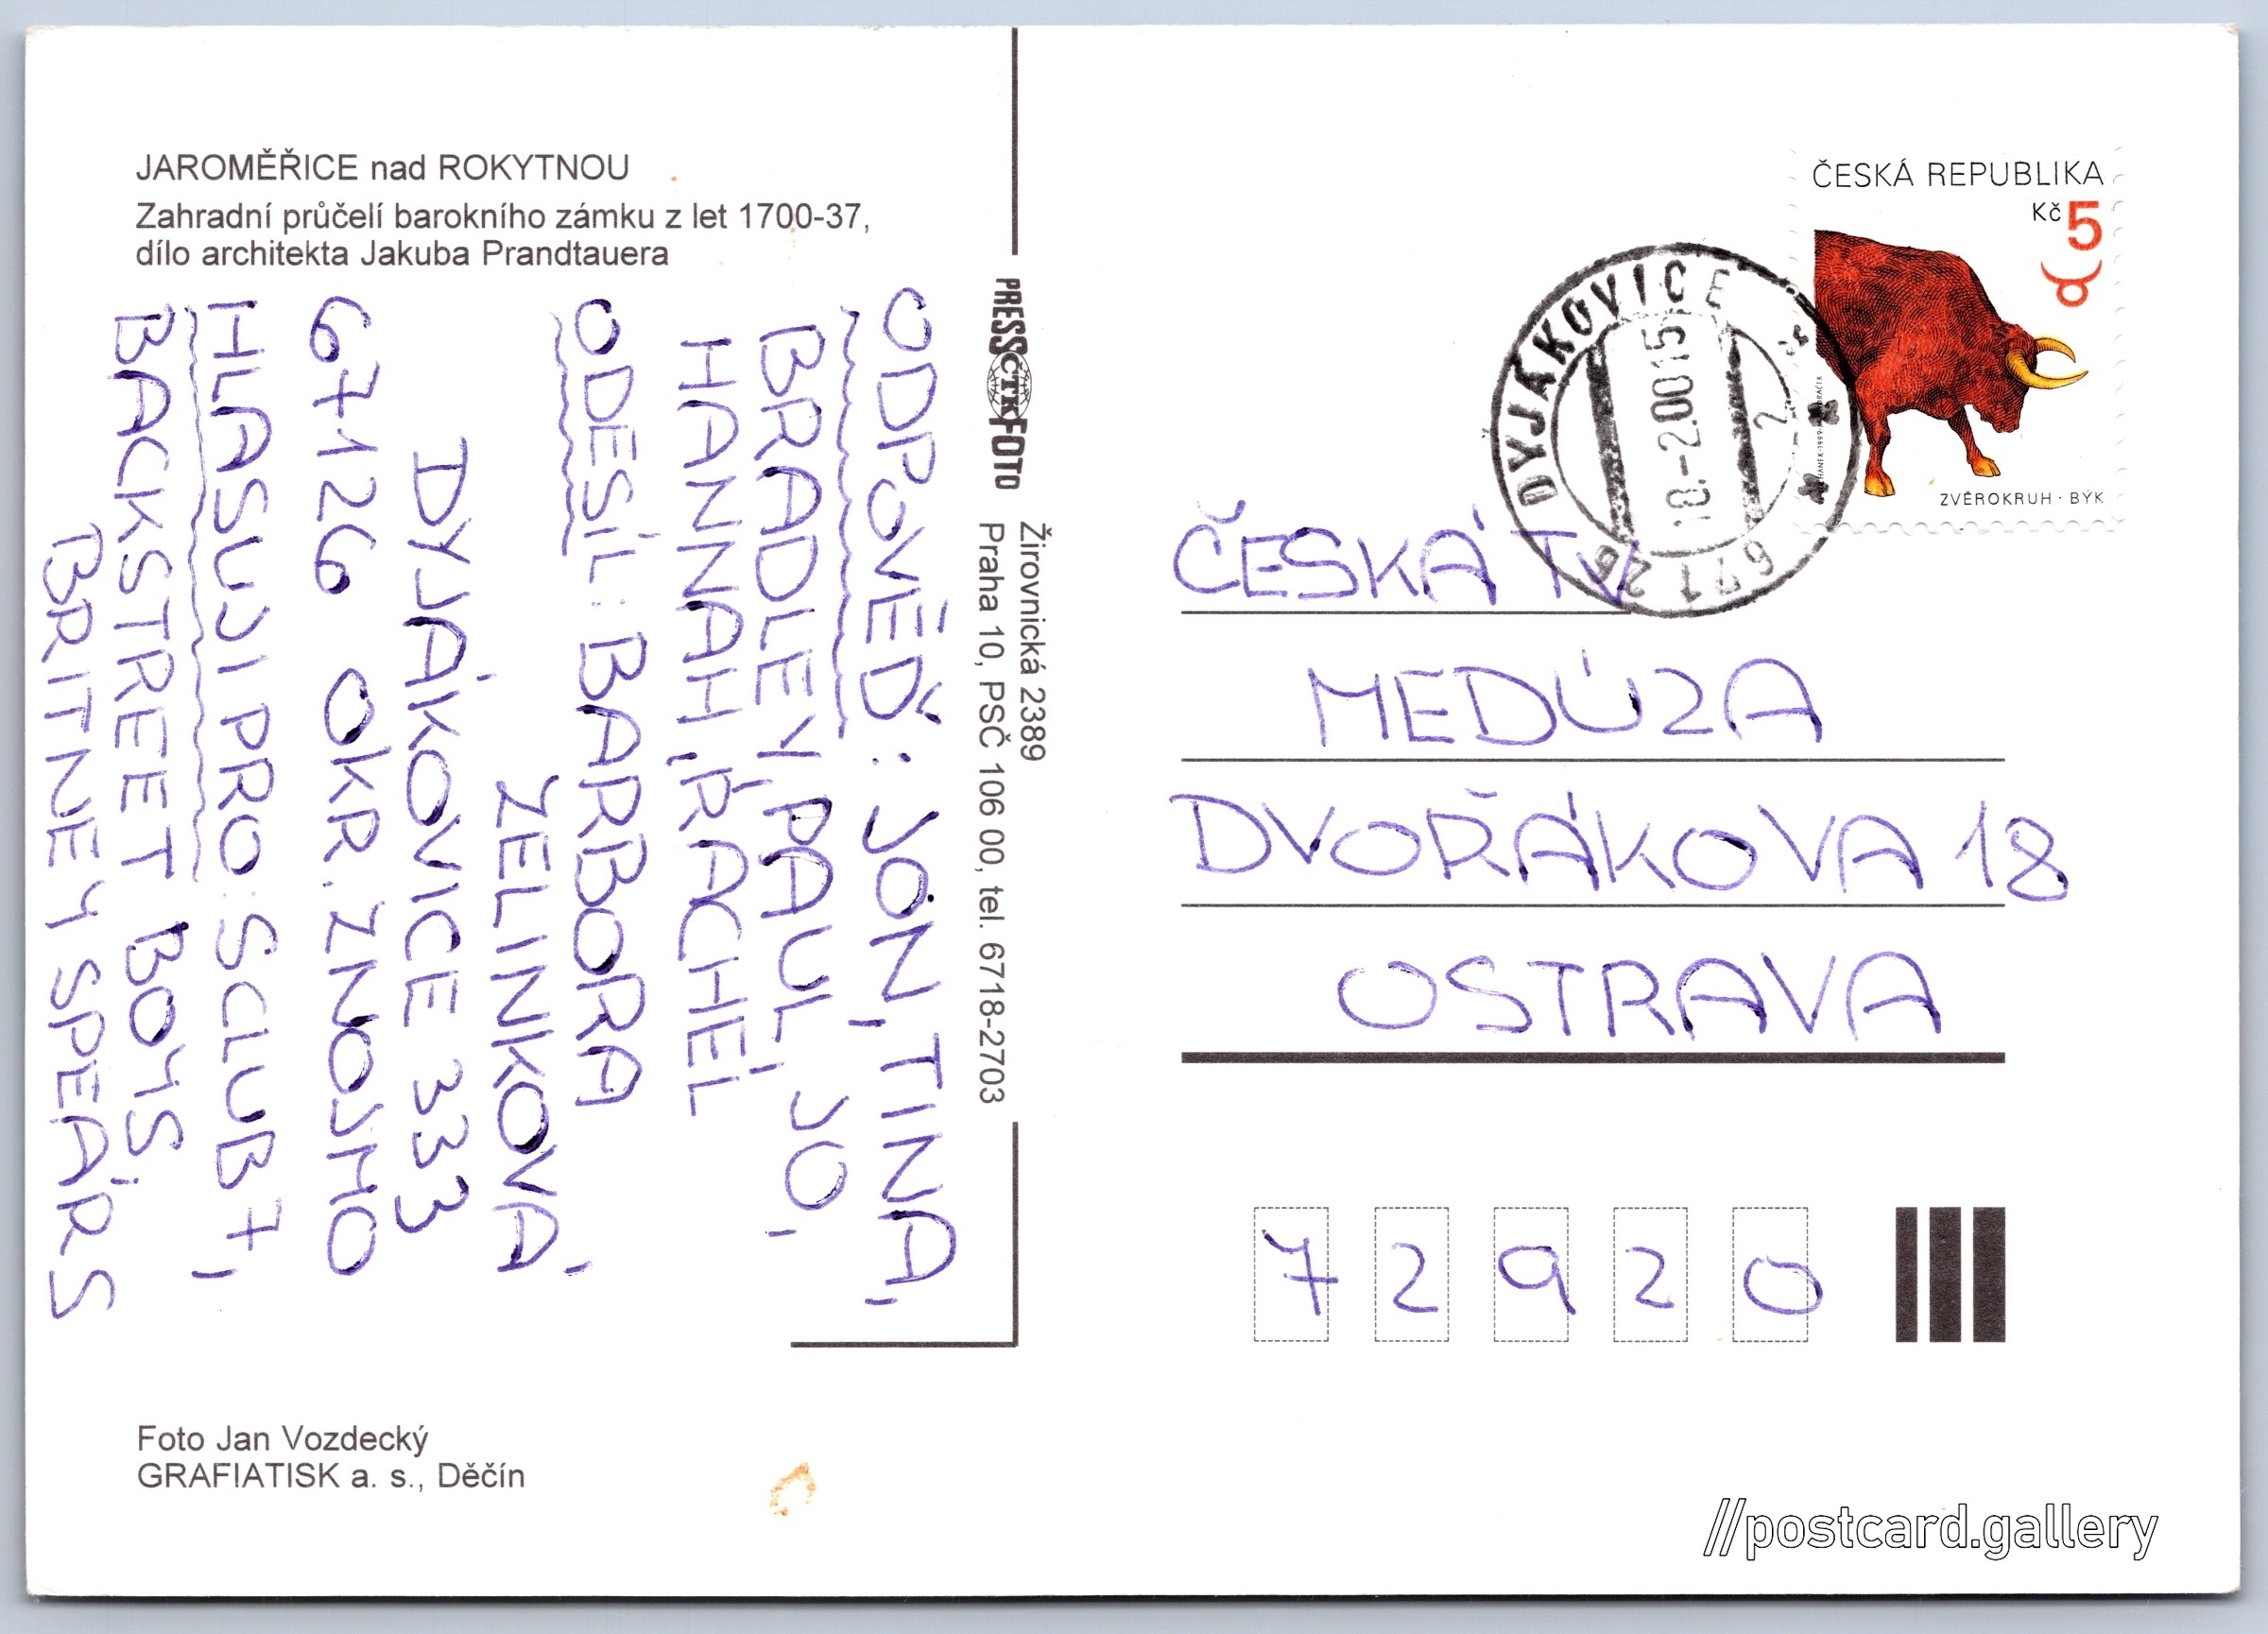 JAROMĚŘICE nad ROKYTNOU
Zahradní průčelí barokního zámku z let 1700-37,
dílo architekta Jakuba Prandtauera
ODPOVĚĎ: JON, TINA,
BRADLEY, PAUL, JO,
HANNAH, RACHEL
ODESÍL: BARBORA
ZELINKOVÁ
DYJÁKOVICE 333
67126 OKR. ZNOJMO
HLASUJI PRO: SCLUB 7,
BACKSTREET BOYS,
BRITNEY SPEARS
Foto Jan Vozdecký
GRAFIATISK a. s., Děčín
PRESS ČTK FOTO
Žirovnická 2389
Praha 10, PSČ 106 00, tel. 6718-2703
ČESKÁ REPUBLIKA
Kč 5
ZVĚROKRUH · BÝK
DYJÁKOVICE
18.-2.00 15
2
671 26
ČESKÁ TV
MEDÚZA
DVOŘÁKOVA 18
OSTRAVA
72920
//postcard.gallery